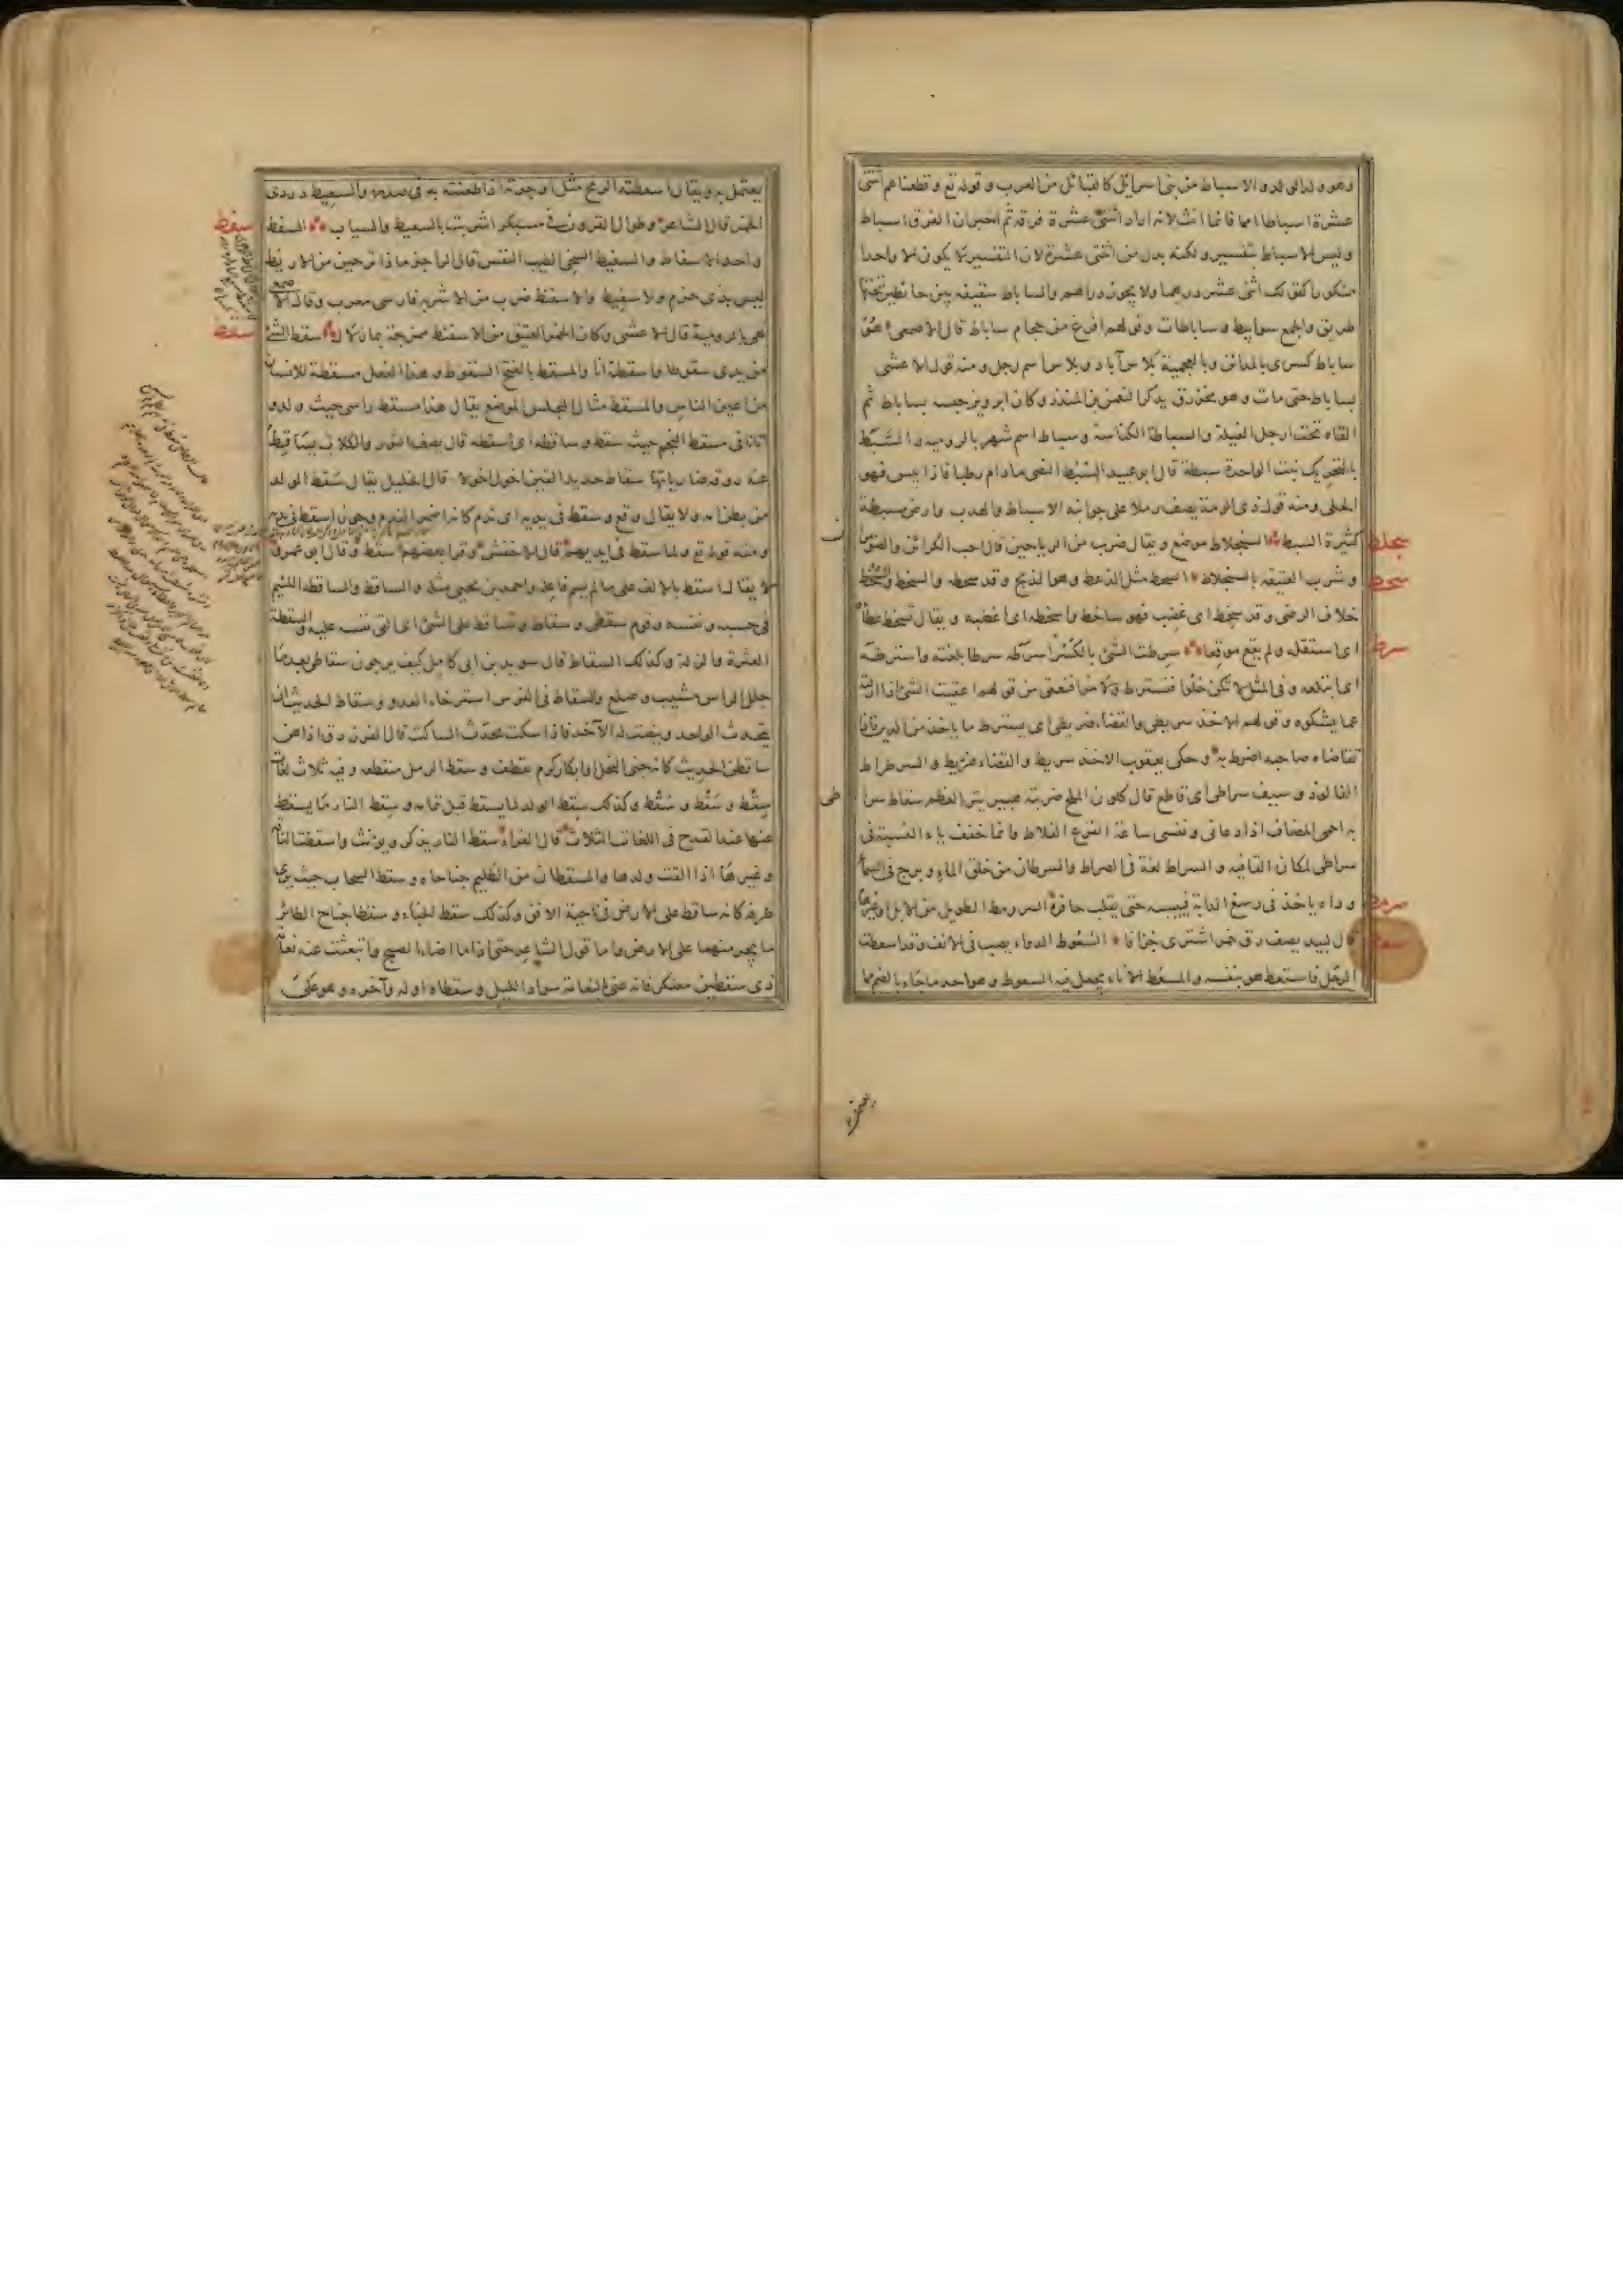 وهو ولد الولد والاسباط من بنى اسرائل كالقبائل من العرب وقوله تع وقطعناهم اثنتى
عشرة اسباطا امما فانما انث لانه اراد اثنتى عشرة فرقة ثم اخبر ان الفرق اسباط
وليس الاسباط بتفسير ولكنه بدل من اثنتى عشرة لان التفسير لا يكون الا واحدا
منكورا كقولك اثنى عشر درهما ولا يجوز دراهم والساباط سقيفة بين حائطين تحتها
طريق والجمع سوابيط وساباطات وقولهم افرغ من حجام ساباط قال الاصمعى هو
ساباط كسرى بالمدائن وبالعجمية بلاس آباد وبلاس اسم رجل ومنه قول الاعشى
بساباط حتى مات وهو محزرق يذكر النعمن بن المنذر وكان ابرويز حبسه بساباط ثم
القاه تحت ارجل الفيلة والسباطة الكناسة وسباط اسم شهر بالرومية والسبط
بالتحريك نبت الواحدة سبطة قال ابو عبيد السبط النصى مادام رطبا فاذا يبس فهو
الحلى ومنه قول ذى الرمة يصف رملا على جوانبه الاسباط والهدب وارض سبطة
كثيرة السبط السنجلاط موضع ويقال ضرب من الرياحين قال احب الكرائن والضو
وشرب العتيقة بالسنجلاط السحط مثل الذعط وهو الذبح وقد سحطه والسخط والسخط
خلاف الرضى وقد سخط اى غضب فهو ساخط واسخطه اى اغضبه ويقال تسخط عطاء
اى استقله ولم يقع موقعا سرطت الشئ بالكسر اسرطه سرطا بلعته واسترطه
اى ابتلعه وفى المثل لا تكن حلوا فتسترط ولا مرا فتعقى من قولهم اعقيت الشئ اذا ازلته
عما يشكوه وقولهم الاخذ سريطى والقضاء ضريطى اى يسترط ما ياخذ من الدين فاذا
تقاضاه صاحبه اضرط به وحكى يعقوب الاخذ سريط والقضاء ضريط والسرطراط
الفالوذ وسيف سراطى اى قاطع قال كلون الملح ضربته هبير يتر العظم سقاط سرا
به احمى المضاف اذا دعانى ونفسى ساعة الفزع الفلاط وانما خفف ياء النسبة فى
سراطى لمكان القافية والسراط لغة فى الصراط والسرطان من خلق الماء وبرج فى السماء
وداء ياخذ فى رسغ الدابة فييبسه حتى يقلب حافره السرومط الطويل من الابل وغيرها
قال لبيد يصف زق خمر اشترى جزافا السعوط الدواء يصب فى الانف وقد اسعطت
الرجل فاستعط هو بنفسه والمسعط الاناء يجعل فيه السعوط وهو احد ما جاء بالضم مما
سجلط
سحط
سرط
سرمط
سعط
يعتمل به ويقال اسعطته الرمح مثل اوجرته اذا طعنته به فى صدره والسعيط دردى
الخمر قال الشاعر وطوال القرون فى مسبكر اشربت بالسعيط والسياب السفط
واحد الاسفاط والسفيط السخى الطيب النفس قال الراجز ماذا ترجين من الاريط
ليس بذى حزم ولا سفيط والاسفنط ضرب من الاشربة فارسى معرب وقال
هى بالرومية قال الاعشى وكان الخمر العتيق من الاسفنط ممزوجة بماء زلال سقط الشئ
من يدى سقوطا واسقطته انا والمسقط بالفتح السقوط وهذا الفعل مسقطة للانسان
من اعين الناس والمسقط مثال المجلس الموضع يقال هذا مسقط راسى حيث ولدو
اتانا فى مسقط النجم حيث سقط وساقطه اى اسقطه قال يصف الثور والكلاب يساقط
عنه روقه ضارياتها سقاط حديد القين اخول اخولا قال الخليل يقال سقط الولد
من بطن امه ولا يقال وقع وسقط فى يديه اى ندم كانه اضمر الندم وجوز اسقط فى يديه
ومنه قوله تع ولما سقط فى ايديهم قال الاخفش وقرا بعضهم سقط وقال ابو عمرو
لا يقال اسقط بالالف على مالم يسم فاعله واحمد بن يحيى مثله والساقط والساقطة اللئيم
فى حسبه ونفسه وقوم سقطى وسقاط وتساقط على الشئ اى القى نفسه عليه والسقطة
العثرة والزلة وكذلك السقاط قال سويد بن ابى كاهل كيف يرجون سقاطى بعدما
جلل الراس مشيب وصلع والسقاط فى الفرس استرخاء العدو وسقاط الحديث ان
يتحدث الواحد وينصت له الآخر فاذا سكت تحدث الساكت قال الفرزدق اذا هن
ساقطن الحديث كانه جنى النحل او ابكار كرم تقطف وسقط الرمل منقطعه وفيه ثلاث لغات
سقط وسقط وسقط وكذلك سقط الولد لما يسقط قبل تمامه وسقط النار ما يسقط
منها عند القدح فى اللغات الثلاث قال الفراء سقط النار يذكر ويؤنث واسقطت الناقة
وغيرها اذا القت ولدها والسقطان من الظليم جناحاه وسقط السحاب حيث يرى
طرفه كانه ساقط على الارض فى ناحية الافق وكذلك سقط الخباء وسقطا جناح الطائر
ما يجر منهما على الارض واما قول الشاعر حتى اذا ما اضاء الصبح وانبعثت عنه نعامة
ذى سقطين معتكر فانه عنى بالنعامة سواد الليل وسقطاه اوله وآخره وهو على
سفط
سقط